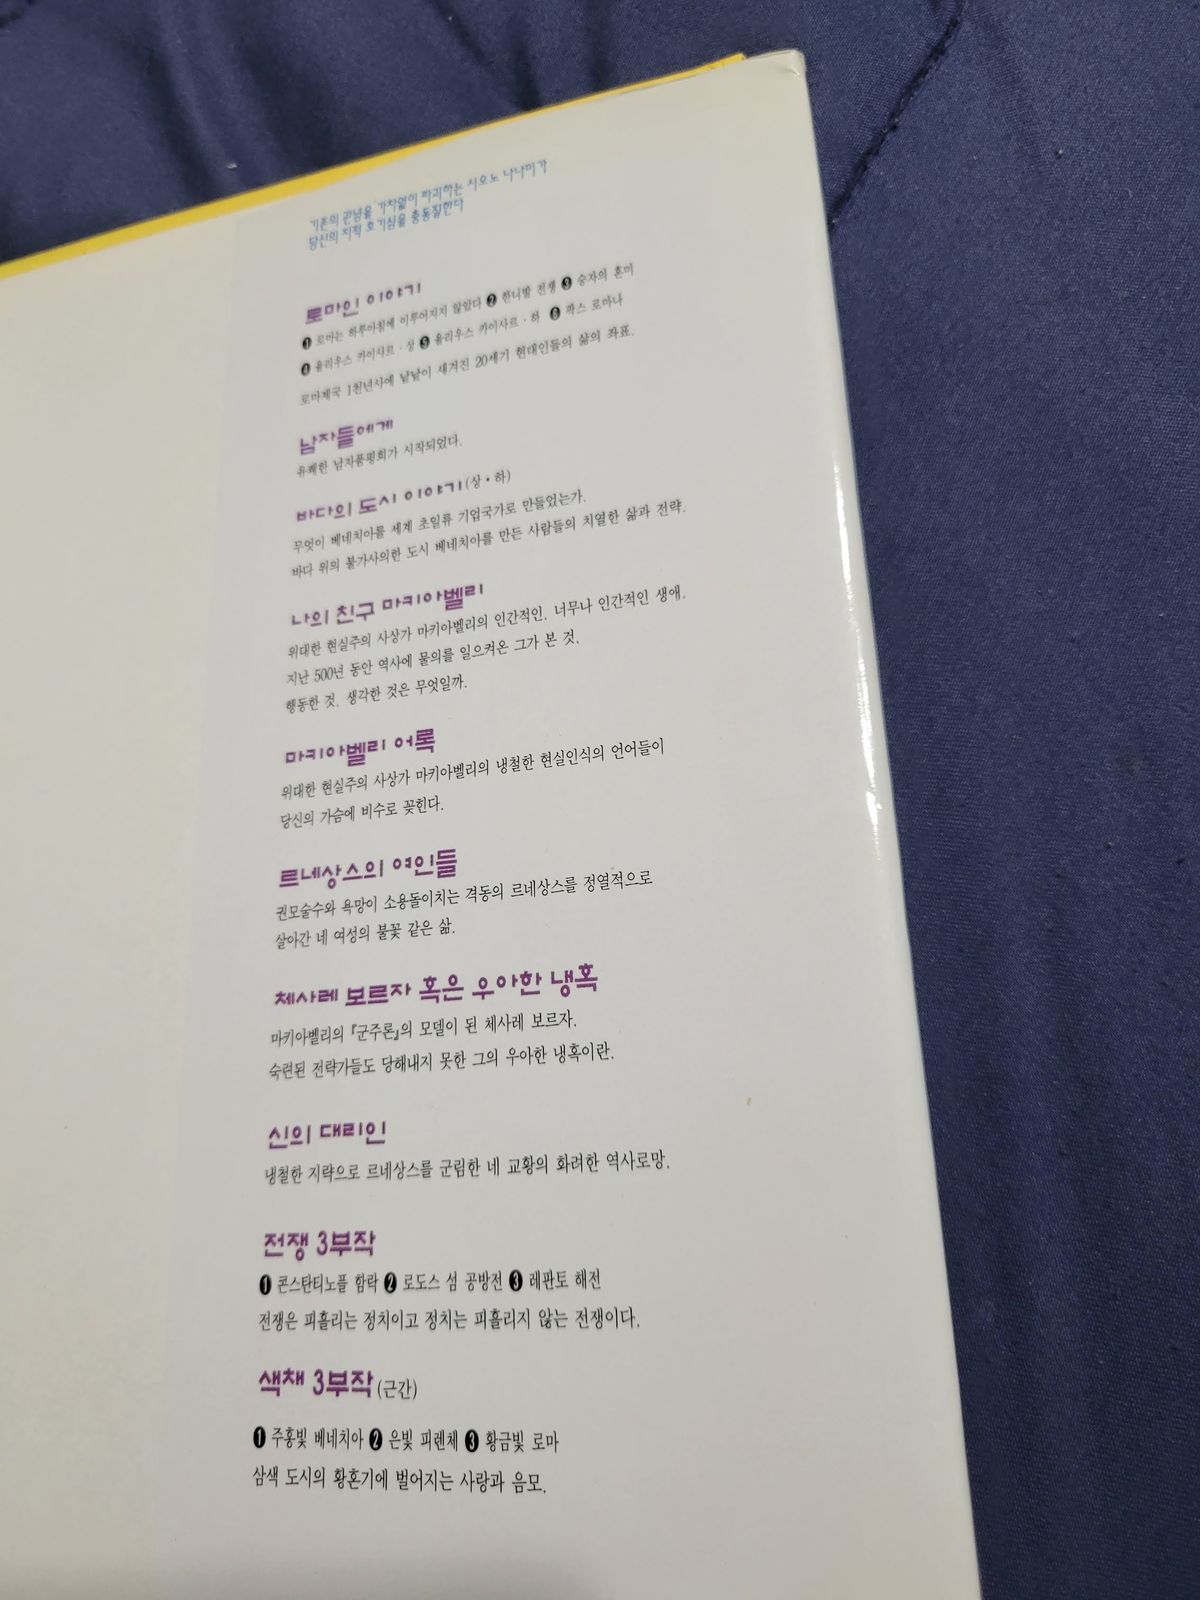 기존의 관념을 가차없이 파괴하는 시오노 나나미가
당신의 지적 호기심을 충동질한다
로마인 이야기
❶ 로마는 하루아침에 이루어지지 않았다 ❷ 한니발 전쟁 ❸ 승자의 혼미
❹ 율리우스 카이사르 · 상 ❺ 율리우스 카이사르 · 하 ❻ 팍스 로마나
로마제국 1천년사에 낱낱이 새겨진 20세기 현대인들의 삶의 좌표.
남자들에게
유쾌한 남자품평회가 시작되었다.
바다의 도시 이야기(상·하)
무엇이 베네치아를 세계 초일류 기업국가로 만들었는가.
바다 위의 불가사의한 도시 베네치아를 만든 사람들의 치열한 삶과 전략.
나의 친구 마키아벨리
위대한 현실주의 사상가 마키아벨리의 인간적인, 너무나 인간적인 생애.
지난 500년 동안 역사에 물의를 일으켜온 그가 본 것,
행동한 것, 생각한 것은 무엇일까.
마키아벨리 어록
위대한 현실주의 사상가 마키아벨리의 냉철한 현실인식의 언어들이
당신의 가슴에 비수로 꽂힌다.
르네상스의 여인들
권모술수와 욕망이 소용돌이치는 격동의 르네상스를 정열적으로
살아간 네 여성의 불꽃 같은 삶.
체사레 보르자 혹은 우아한 냉혹
마키아벨리의 『군주론』의 모델이 된 체사레 보르자.
숙련된 전략가들도 당해내지 못한 그의 우아한 냉혹이란.
신의 대리인
냉철한 지략으로 르네상스를 군림한 네 교황의 화려한 역사로망.
전쟁 3부작
❶ 콘스탄티노플 함락 ❷ 로도스 섬 공방전 ❸ 레판토 해전
전쟁은 피흘리는 정치이고 정치는 피흘리지 않는 전쟁이다.
색채 3부작(근간)
❶ 주홍빛 베네치아 ❷ 은빛 피렌체 ❸ 황금빛 로마
삼색 도시의 황혼기에 벌어지는 사랑과 음모.